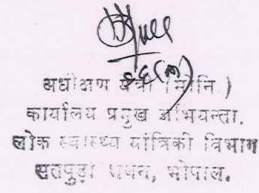 अधीक्षण यंत्री (मानि.)
कार्यालय प्रमुख अभियन्ता.
लोक स्वास्थ्य यांत्रिकी विभाग
सतपुड़ा भवन, भोपाल.